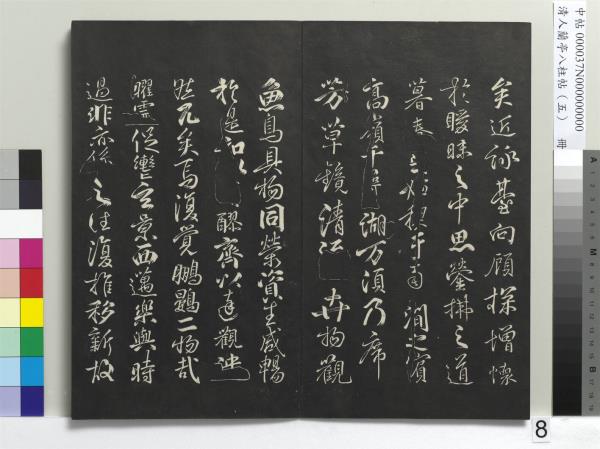 中帖 000037N000000000
清人蘭亭八柱帖（五） 冊
矣近詠臺向顧探增懷
於曖昧之中思瑩拂之道
暮春 南澗之濱
高嶺千尋湖万頃乃席
芳草鏡清 卉物觀
魚鳥具物同榮資生咸暢
於是和以醪齊以達觀泱
然兀矣焉復覺鵬鷃二物哉
曜靈促轡玄景西邁樂與時
過悲亦係之往復推移新故
8